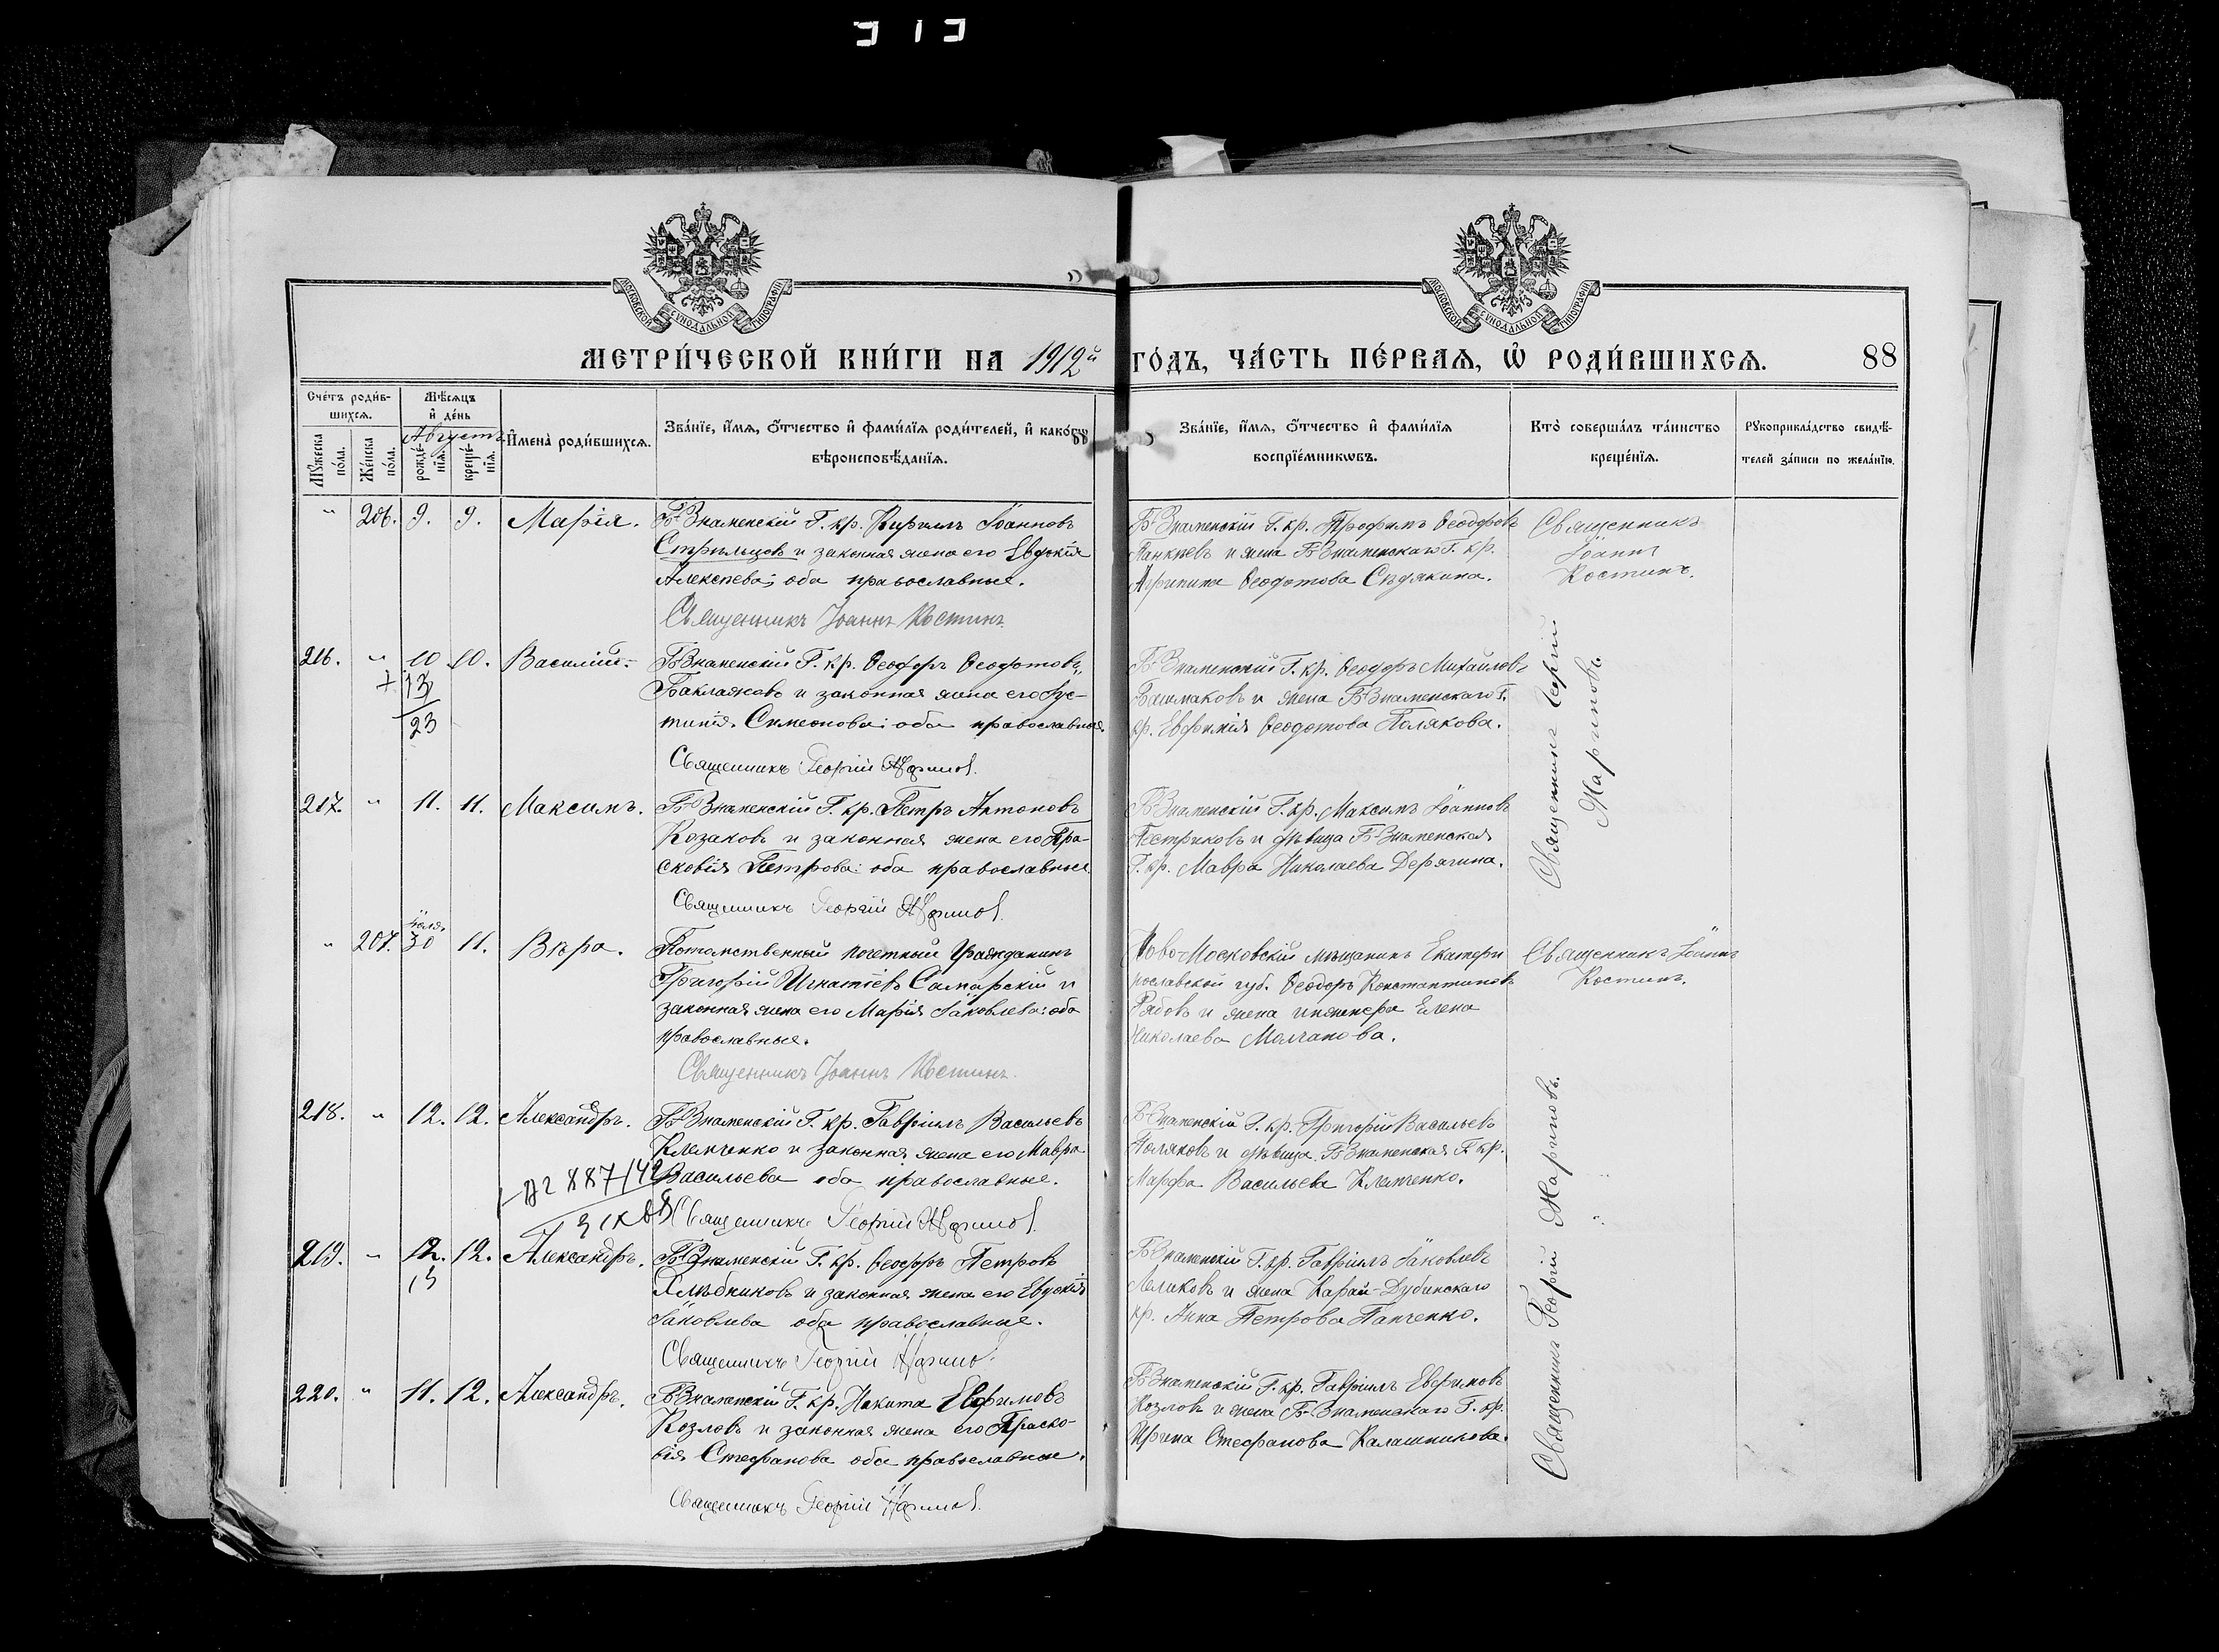 313
МЕТРИЧЕСКОЙ КНИГИ НА 1912й ГОДЪ, ЧАСТЬ ПЕРВАЯ, Ѿ РОДИВШИХСЯ. 88
МОСКОВСКОЙ СѴНОДАЛЬНОЙ ТИПОГРАФІИ
МОСКОВСКОЙ СѴНОДАЛЬНОЙ ТИПОГРАФІИ
Счетъ родившихся.
Мужеска пола.
Женска пола.
Мѣсяцъ и день
Августъ
рожденія.
крещенія.
Имена родившихся.
Званіе, имя, отчество и фамилія родителей, и какогѡ
вѣроисповѣданія.
Званіе, имя, отчество и фамилія
воспріемникωвъ.
Кто совершалъ таинство
крещенія.
Рукоприкладство свидѣ-
телей записи по желанію.
" 206. 9. 9. Марія.
Б-Знаменскій Г. кр. Кирилъ Іоанновъ
Стрѣльцовъ и законная жена его Евдокія
Алексѣева; оба православные.
Священникъ Іоаннъ Костинъ
Б-Знаменскій Г. кр. Трофимъ Ѳеодоровъ
Панкіевъ и жена Б-Знаменскаго Г. кр.
Агрипина Ѳеодотова Сѣдякина.
Священникъ
Іоаннъ
Костинъ.
216. " 10 10. Василій.
+ 13
23
Б-Знаменскій Г. кр. Ѳеодоръ Ѳеодотовъ
Баклажовъ и законная жена его Іус-
тинія Симеонова: оба православные.
Священникъ Георгій
Б-Знаменскій Г. кр. Ѳеодоръ Михайловъ
Башмаковъ и жена Б-Знаменскаго Г.
кр. Евфимія Ѳеодотова Полякова.
Священникъ Георгій
Мариновъ
217. " 11. 11. Максимъ.
Б-Знаменскій Г. кр. Петръ Антоновъ
Козаковъ и законная жена его Пра-
сковія Петрова: оба православные
Священникъ Георгій
Б-Знаменскій Г. кр. Максимъ Іоанновъ
Пестриковъ и дѣвица Б-Знаменская
Г. кр. Мавра Николаева Дерягина.
" 207. Іюля 30 11. Вѣра.
Потомственный почетный Гражданинъ
Григорій Игнатіевъ Самарскій и
законная жена его Марія Іаковлева: оба
православные.
Священникъ Іоаннъ Костинъ.
Ново-Московскій мѣщанинъ Екатери
нославской губ. Ѳеодоръ Константиновъ
Рябовъ и жена инженера Елена
Николаева Молчанова.
Священникъ Іоаннъ
Костинъ.
218. " 12. 12. Александръ.
Б-Знаменскій Г. кр. Гавріилъ Васильевъ
Клепченко и законная жена его Мавра
Васильева оба православные.
887/142
Священникъ Георгій
Б-Знаменскій Г. кр. Григорій Васильевъ
Поляковъ и дѣвица Б-Знаменская Г. кр.
Марфа Васильева Клепченко.
219. " 12. 12. Александръ.
Б-Знаменскій Г. кр. Ѳеодоръ Петровъ
Хлѣбниковъ и законная жена его Евдокія
Іаковлева оба православные.
Священникъ Георгій
Б-Знаменскій Г. кр. Гавріилъ Іаковлевъ
Леликовъ и жена Карай-Дубинскаго
кр. Анна Петрова Панченко.
Священникъ Георгій Мариновъ.
220. " 11. 12. Александръ.
Б-Знаменскій Г. кр. Никита Евфимовъ
Козловъ и законная жена его Праско-
вія Стефанова оба православные.
Священникъ Георгій
Б-Знаменскій Г. кр. Гавріилъ Евфимовъ
Козловъ и жена Б-Знаменскаго Г. кр.
Ирина Стефанова Калашникова.